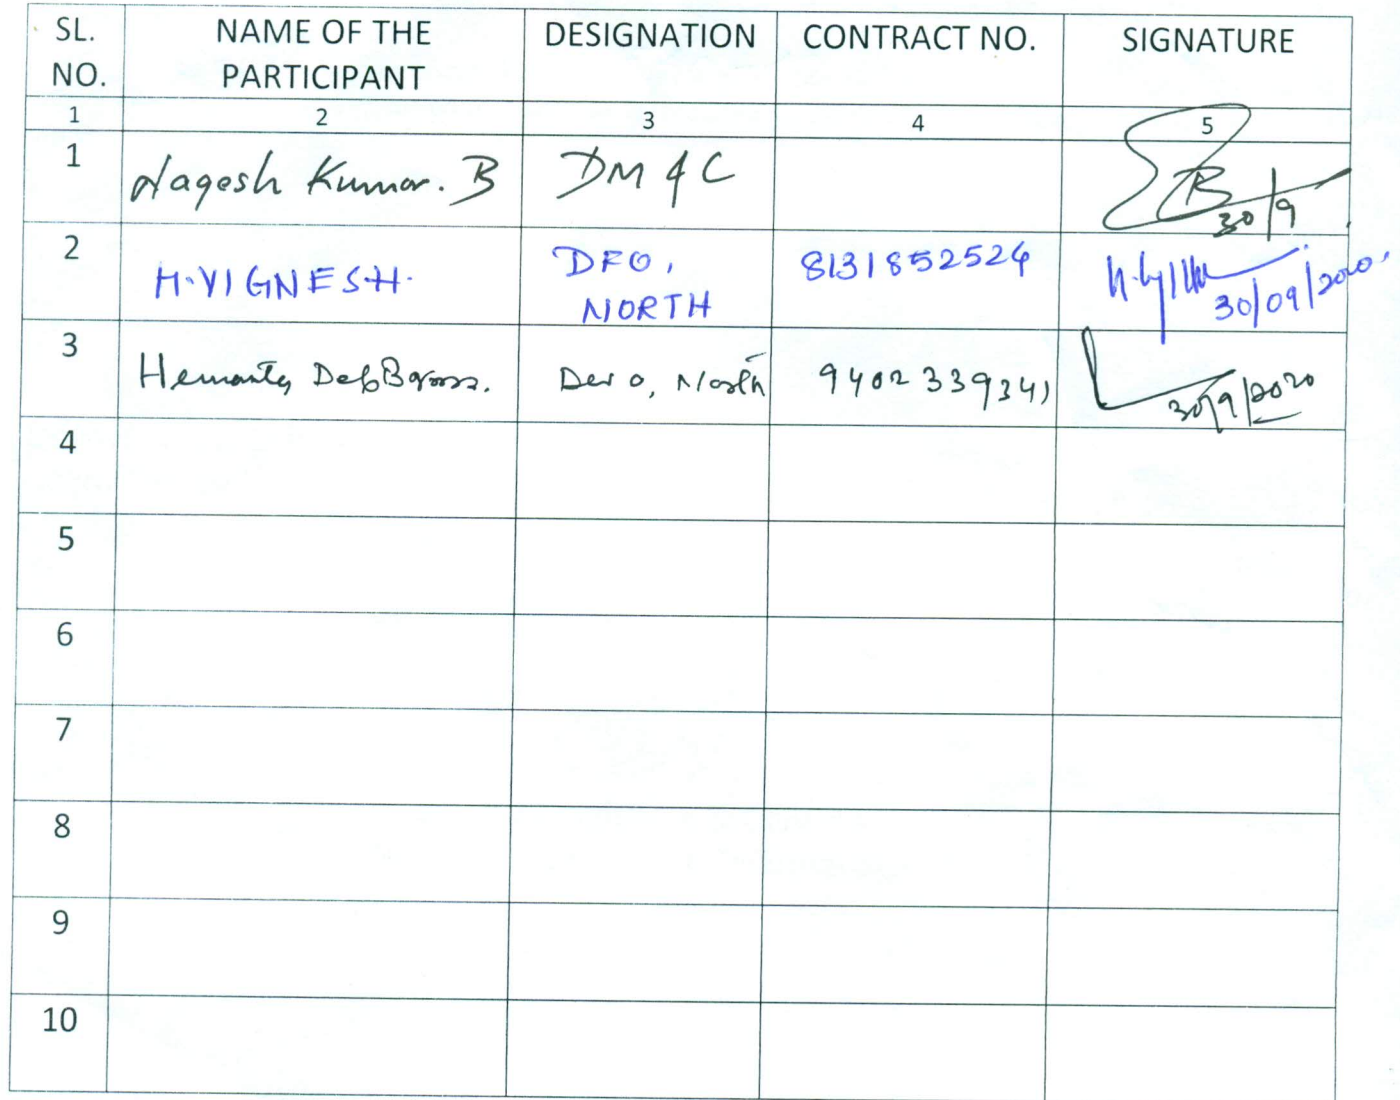 SL. NO. NAME OF THE PARTICIPANT DESIGNATION CONTRACT NO. SIGNATURE
1 2 3 4 5
1 Nagesh Kumar. B DM & C 30/9
2 H. VIGNESH. DFO, NORTH 8131852524 30/09/2020
3 Hemanta DebBarma. North 9402339341 30/9/2020
4
5
6
7
8
9
10